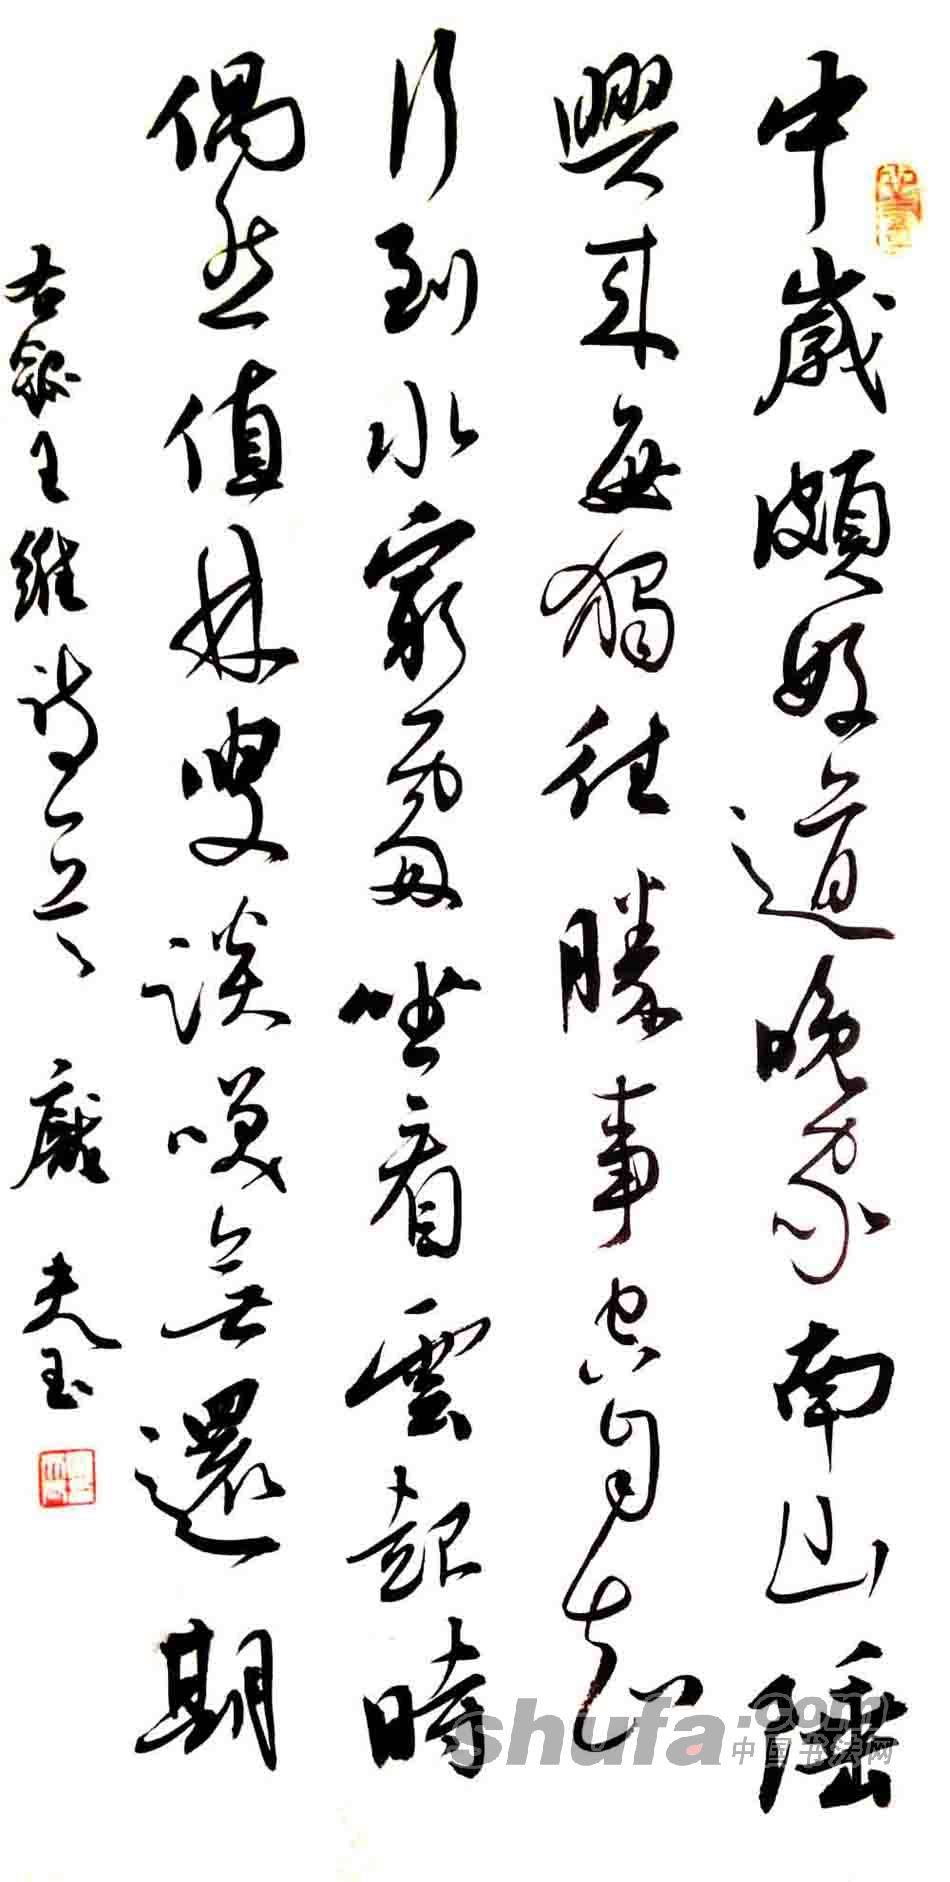 中歲頗好道晚家南山陲
興來每獨往勝事空自知
行到水窮處坐看雲起時
偶然值林叟談咲無還期
右錄王維詩一首 龐
shufa.com
中国书法网